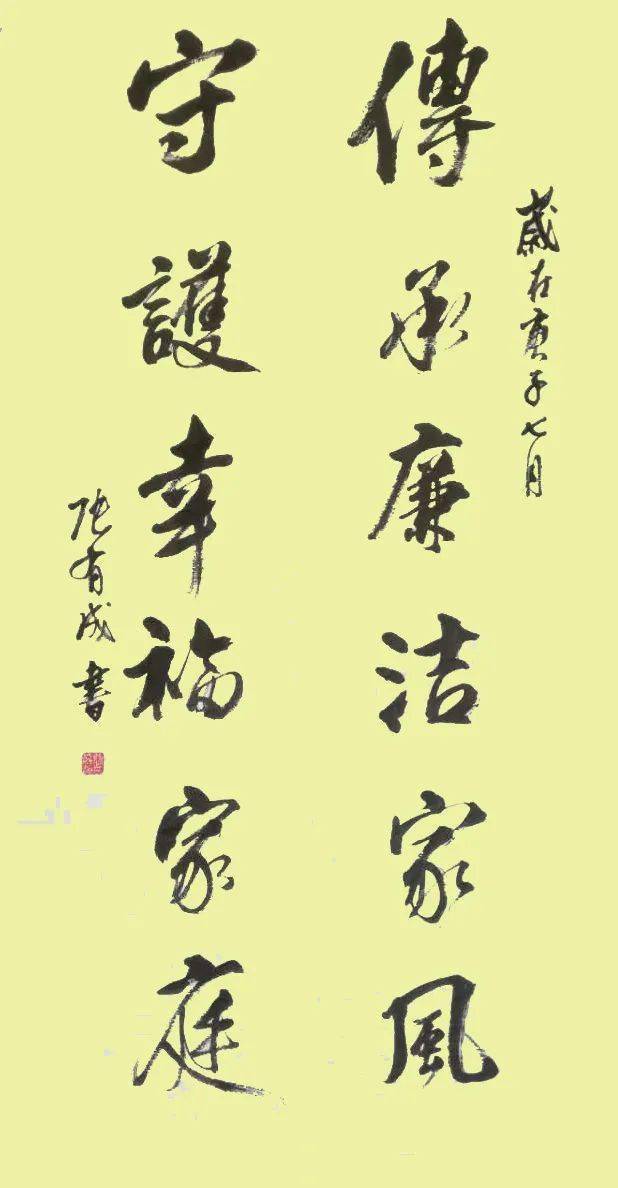 歲在庚子七月
傳承廉洁家風
守護幸福家庭
張有成書